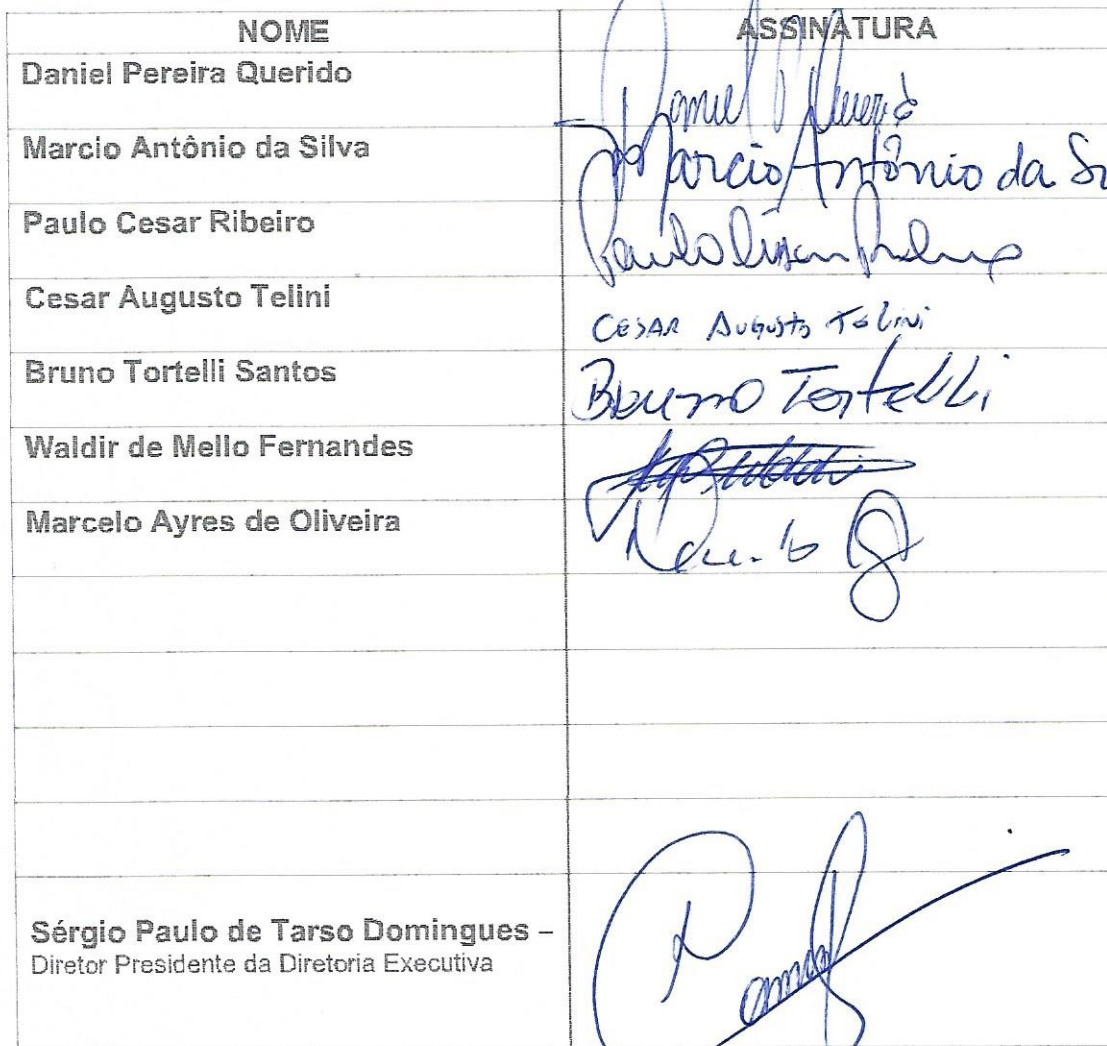 NOME ASSINATURA
Daniel Pereira Querido Daniel
Marcio Antônio da Silva Marcio Antônio da
Paulo Cesar Ribeiro Paulo
Cesar Augusto Telini CESAR AUGUSTO TELINI
Bruno Tortelli Santos Bruno Tortelli
Waldir de Mello Fernandes
Marcelo Ayres de Oliveira
Sérgio Paulo de Tarso Domingues –
Diretor Presidente da Diretoria Executiva